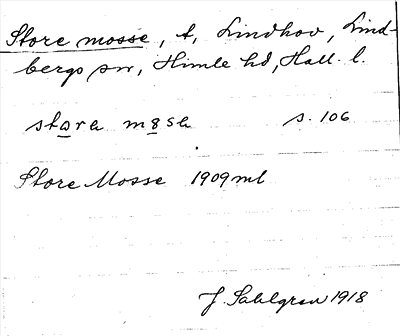 Store mosse, t, Lindhov, Lind-
bergs sn, Himle hd, Hall. l.
stora mose s. 106
Store Mosse 1909 ml
J. Sahlgren 1918